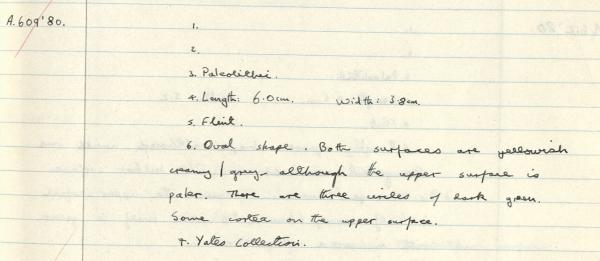 A.609'80.
1.
2.
3. Paleolithic.
4. Length: 6.0cm. Width: 3.8cm.
5. Flint.
6. Oval shape. Both surfaces are yellowish
creamy/grey although the upper surface is
paler. There are three circles of dark green.
Some cortex on the upper surface.
7. Yates Collection.